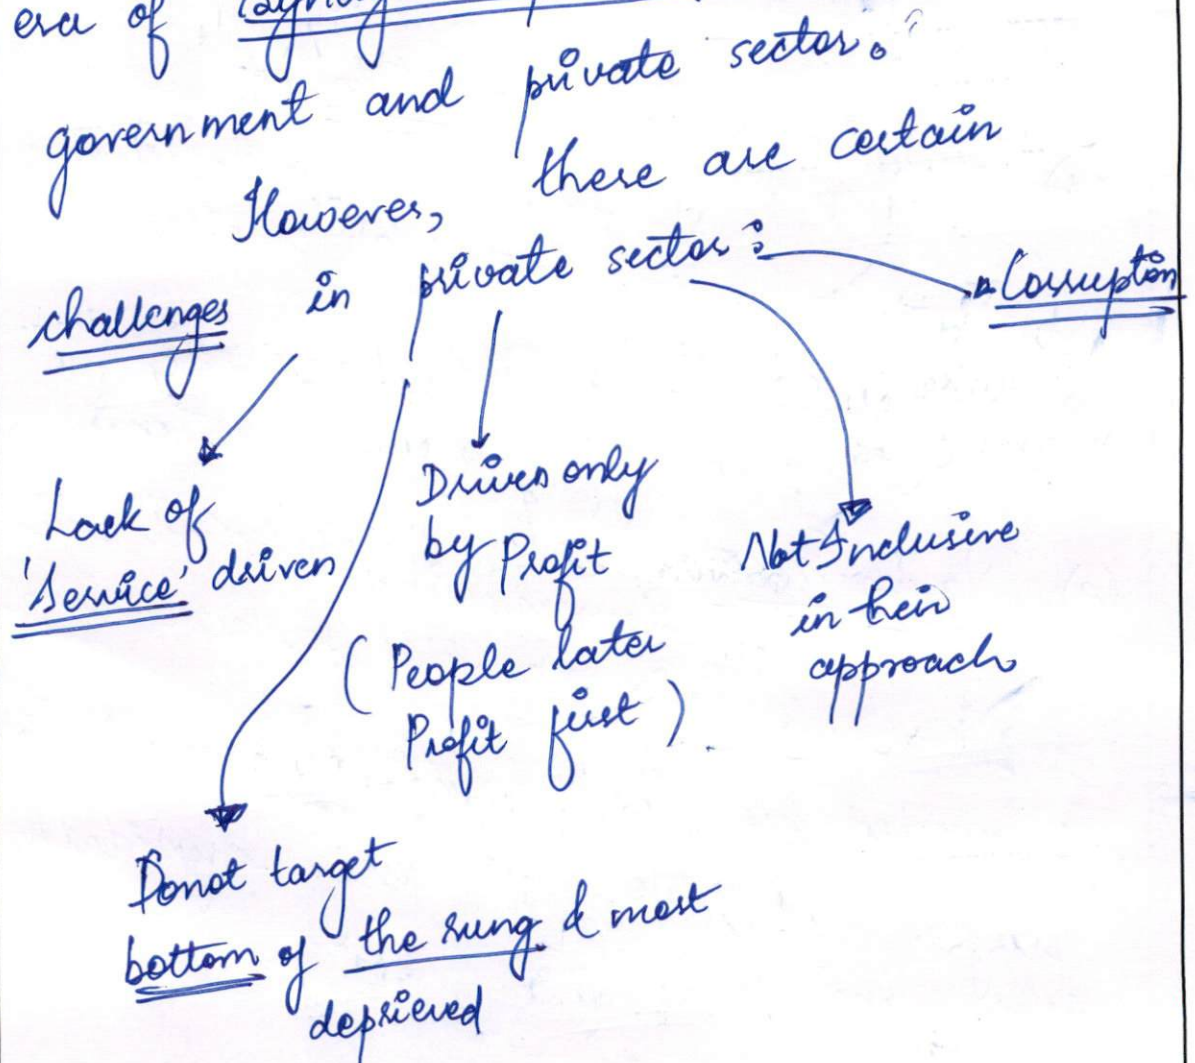 era of
government and private sector.
However, there are certain
challenges in private sector:
Corruption
Lack of
'Service' driven
Driven only
by Profit
(People later
Profit first).
Not Inclusive
in their
approach
Donot target
bottom of the rung & most
deprieved